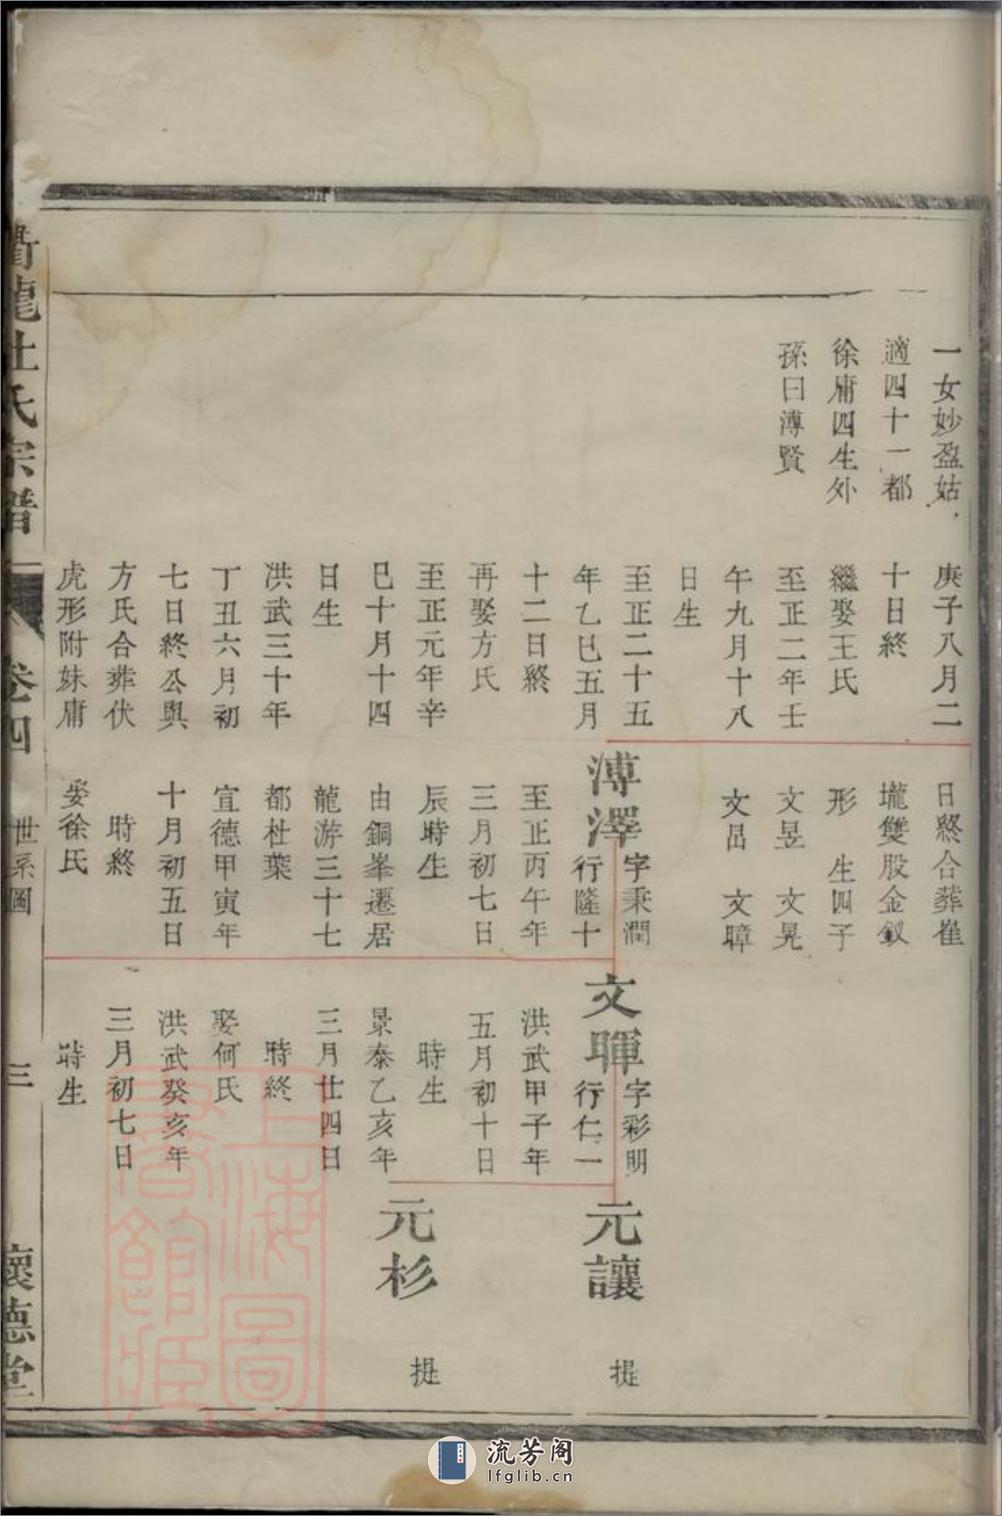 一女妙盈姑
適四十一都
徐庸四生外
孫曰溥賢
庚子八月二
十日終
繼娶王氏
至正二年壬
午九月十八
日生
至正二十五
年乙巳五月
十二日終
再娶方氏
至正元年辛
巳十月十四
日生
洪武三十年
丁丑六月初
七日終公與
方氏合葬伏
虎形附妹庸
日終合葬崔
壠雙股金釵
形 生四子
文昱 文晃
文昌 文暲
溥澤
字秉潤
行隆十
至正丙午年
三月初七日
辰時生
由銅峯遷居
龍游三十七
都杜葉
宣德甲寅年
十月初五日
時終
娶徐氏
文暉
字彩明
行仁一
洪武甲子年
五月初十日
時生
景泰乙亥年
三月廿四日
時終
娶何氏
洪武癸亥年
三月初七日
時生
元讓
提
元杉
提
龍杜氏宗譜
卷四
世系圖
三
懷德堂
上海圖書館藏
流芳阁
lfglib.cn